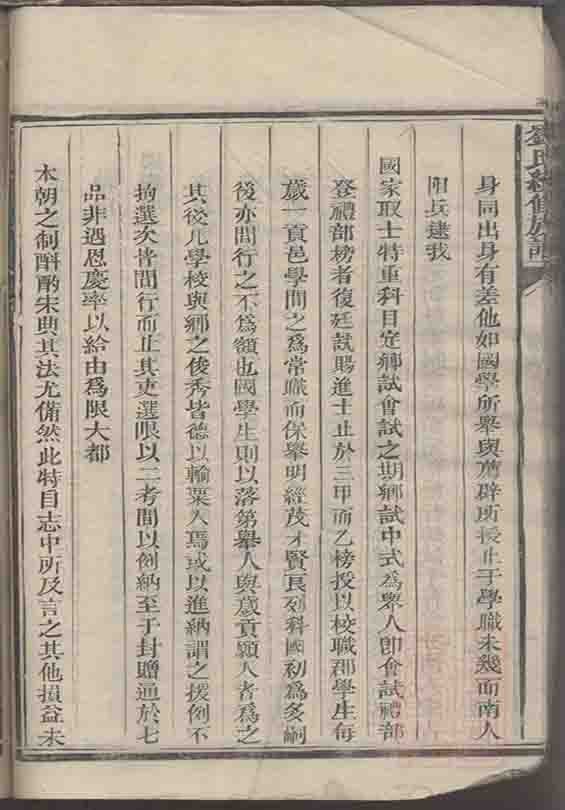 劉氏續修族譜
身同出身有差他如國學所舉與薦辟所授止于學職未幾而南人
阻兵逮我
國家取士特重科目定鄉試會試之期鄉試中式為舉人卽會試禮部
登禮部榜者復廷試賜進士止於三甲而乙榜授以校職郡學生每
歲一貢邑學間之為常職而保舉明經茂才賢良列科國初為多嗣
後亦間行之不為額也國學生則以落第舉人與歲貢願入者為之
其後凡學校與鄉之俊秀皆德以輸粟入焉或以進納謂之援例不
拘選次皆間行而止其吏選限以二考間以例納至于封贈逼於七
品非遇恩慶率以給由為限大都
本朝之制斟酌宋典其法尤備然此特目志中所及言之其他損益未